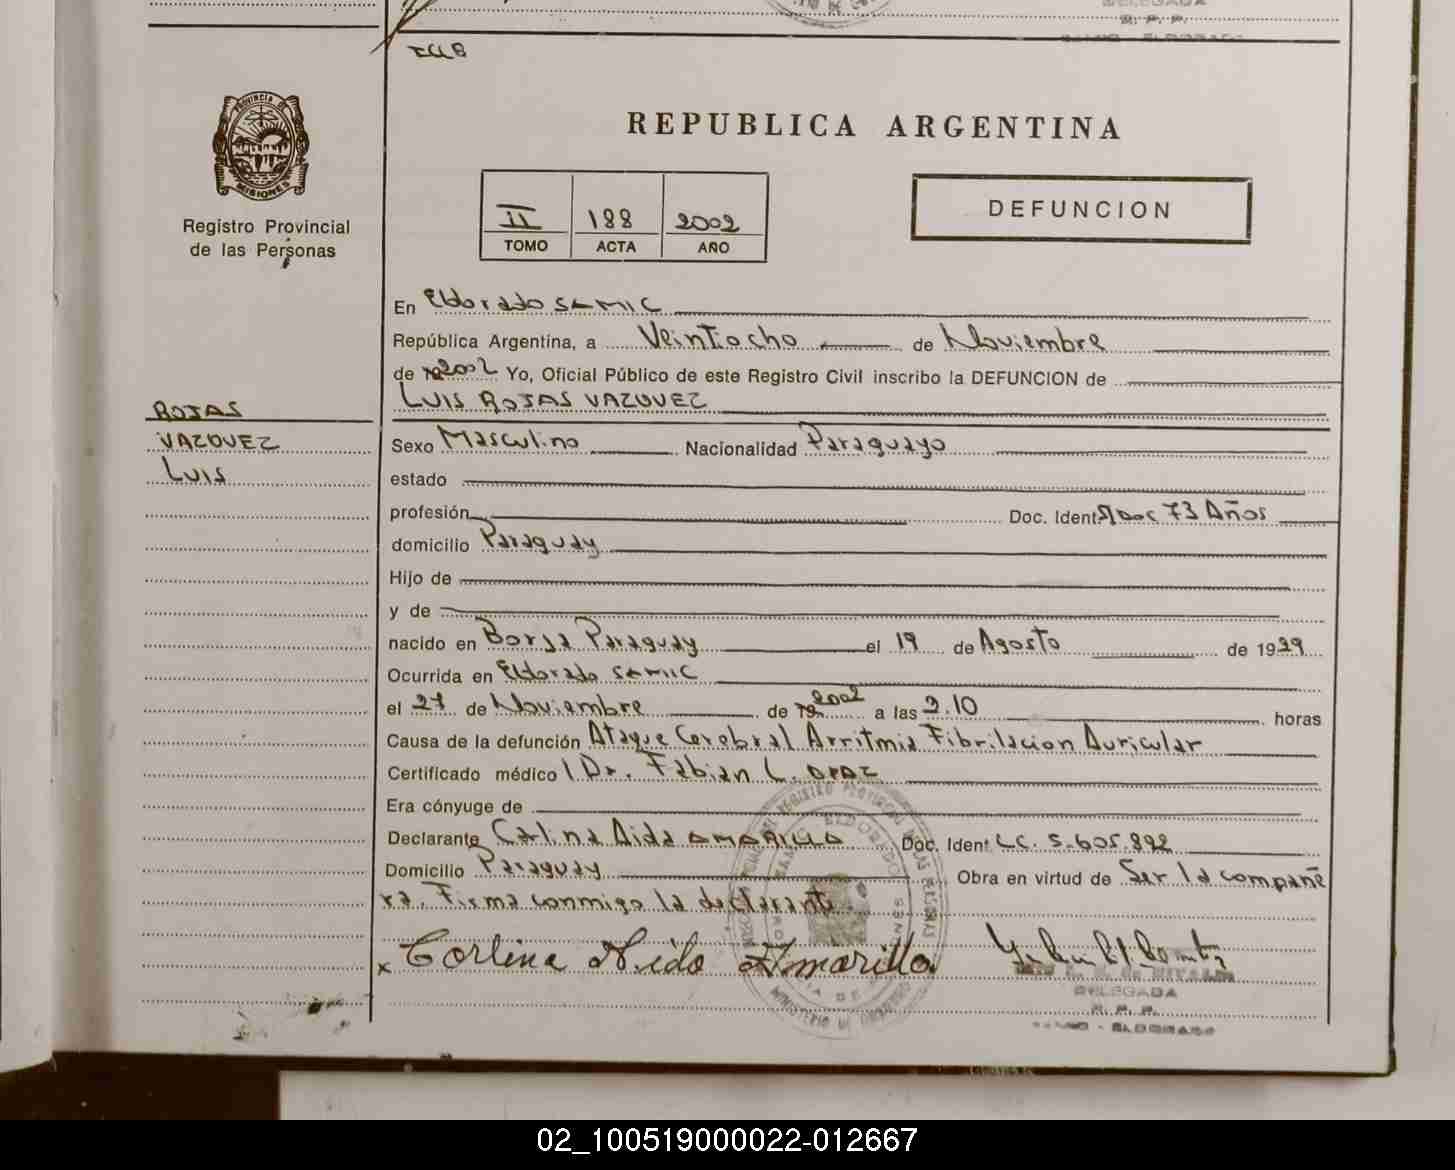 REPUBLICA ARGENTINA
PROVINCIA DE
MISIONES
Registro Provincial
de las Personas
II 188 2002
TOMO ACTA AÑO
DEFUNCION
En Eldorado SAMIC
República Argentina, a Veintiocho de Noviembre
de 2002 Yo, Oficial Público de este Registro Civil inscribo la DEFUNCION de
LUIS ROJAS VAZQUEZ
ROJAS
VAZQUEZ
LUIS
Sexo Masculino Nacionalidad Paraguayo
estado
profesión Doc. Ident 73 Años
domicilio Paraguay
Hijo de
y de
nacido en Borja Paraguay el 19 de Agosto de 1929
Ocurrida en Eldorado SAMIC
el 27 de Noviembre de 2002 a las 9.10 horas
Causa de la defunción Ataque Cerebral Arritmia Fibrilacion Auricular
Certificado médico Dr. Fabian L.
Era cónyuge de
Declarante Carlina Aida AMARILLA Doc. Ident LC. 5.605.892
Domicilio Paraguay Obra en virtud de Ser la compañe
ra. Firma conmigo la declarante.
x Carlina Aida Amarilla
DELEGADA
R. P. P.
SAMIC - ELDORADO
02_100519000022-012667